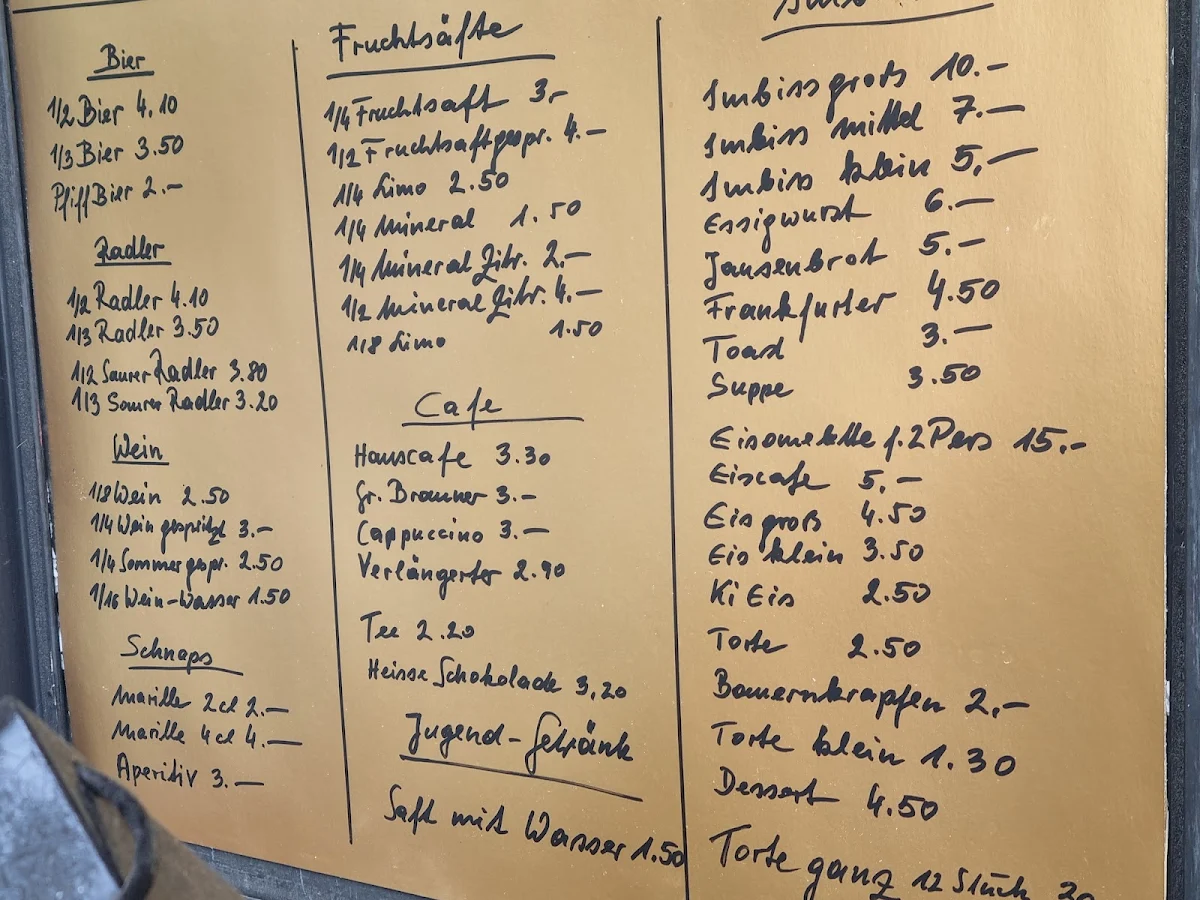 Bier
1/2 Bier 4.10
1/3 Bier 3.50
Pfiff Bier 2.-
Radler
1/2 Radler 4.10
1/3 Radler 3.50
1/2 Saurer Radler 3.80
1/3 Saurer Radler 3.20
Wein
1/8 Wein 2.50
1/4 Wein gespritzt 3.-
1/4 Sommergespr. 2.50
1/16 Wein-Wasser 1.50
Schnaps
Marille 2cl 2.-
Marille 4cl 4.-
Aperitiv 3.-
Fruchtsäfte
1/4 Fruchtsaft 3,-
1/2 Fruchtsaft gespr. 4.-
1/4 Limo 2.50
1/4 Mineral 1.50
1/4 Mineral Zitr. 2.-
1/2 Mineral Zitr. 4.-
1/8 Limo 1.50
Cafe
Hauscafe 3.30
Gr. Brauner 3.-
Cappuccino 3.-
Verlängerter 2.90
Tee 2.20
Heisse Schokolade 3,20
Jugend-Getränk
Saft mit Wasser 1.50
Imbiss groß 10.-
Imbiss mittel 7.-
Imbiss klein 5,-
Essigwurst 6.-
Jausenbrot 5.-
Frankfurter 4.50
Toast 3.-
Suppe 3.50
Eisomelette f. 2 Pers 15.-
Eiscafe 5,-
Eis groß 4.50
Eis klein 3.50
Ki Eis 2.50
Torte 2.50
Bauernkrapfen 2,-
Torte klein 1.30
Dessert 4.50
Torte ganz 12 Stück